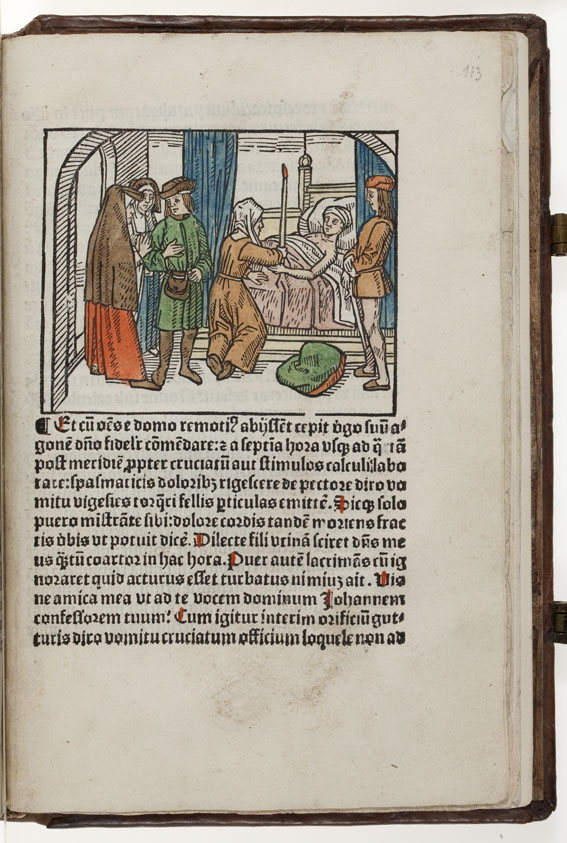 113
¶ Et cū oēs e domo remoti⁹ abijssēt cepit v̄go suū a⸗
gonē dn̄o fideľr cōmēdare: ⁊ a septīa hora vsq̄ ad q̄rtā
post meridiē ꝓpter cruciatū aut stimulos calculi: labo
rare: spasmaticis doloribꝫ rigescere de pectore diro vo
mitu vigesies ter fellis ꝑticulas emittē. Sicqꝫ solo
puero mīstrāte sibi: dolore cordis tandē moriens frac
tis v̄bis vt potuit dicē. Dilecte fili vtinā sciret dn̄s me
us q̄ꝫtū coartor in hac hora. Puer autē lacrimās cū ig
noraret quid acturus esset turbatus nimiuꝫ ait. Vis
ne amica mea vt ad te vocem dominum Johannem
confessorem tuum? Cum igitur interim orificiū gut⸗
turis diro vomitu cruciatum officium loquele non ad